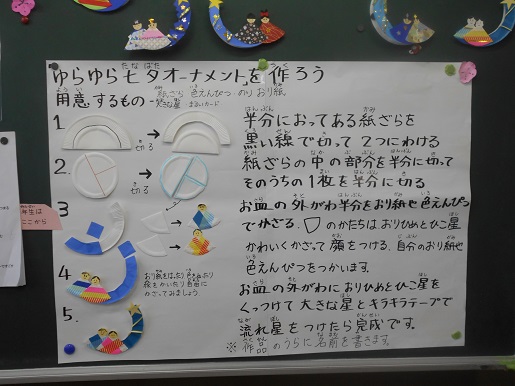 ゆらゆら七夕オーナメントを作ろう
たなばた
つく
用意するもの-紙ざら 色えんぴつ・のり おり紙
大きな星 まるいカード
1
切る
半分におってある紙ざらを
黒い線で切って2つにわける
2.
切る
紙ざらの中の部分を半分に切って
そのうちの1枚を半分に切る
3
お皿の外がわ半分をおり紙や色えんぴつ
でかざる。のかたちはおりひめとひこ星
かわいくかざって顔をつける。自分のおり紙や
色えんぴつをつかいます。
4
かざってみましょう。
お皿の外がわにおりひめとひこ星を
くっつけて大きな星とキラキラテープで
5.
流れ星をつけたら完成です。
※作品のうらに名前を書きます。
年生は
ここから